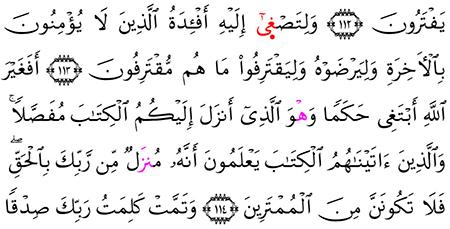 يَفْتَرُونَ ﴿١١٢﴾ وَلِتَصْغَىٰٓ إِلَيْهِ أَفْـِٔدَةُ ٱلَّذِينَ لَا يُؤْمِنُونَ
بِٱلْأَخِرَةِ وَلِيَرْضَوْهُ وَلِيَقْتَرِفُوا۟ مَا هُم مُّقْتَرِفُونَ ﴿١١٣﴾ أَفَغَيْرَ
ٱللَّهِ أَبْتَغِى حَكَمًا وَهْوَ ٱلَّذِىٓ أَنزَلَ إِلَيْكُمُ ٱلْكِتَٰبَ مُفَصَّلًا ۚ
وَٱلَّذِينَ ءَاتَيْنَٰهُمُ ٱلْكِتَٰبَ يَعْلَمُونَ أَنَّهُۥ مُنزَلٌ مِّن رَّبِّكَ بِٱلْحَقِّ ۖ
فَلَا تَكُونَنَّ مِنَ ٱلْمُمْتَرِينَ ﴿١١٤﴾ وَتَمَّتْ كَلِمَٰتُ رَبِّكَ صِدْقًا